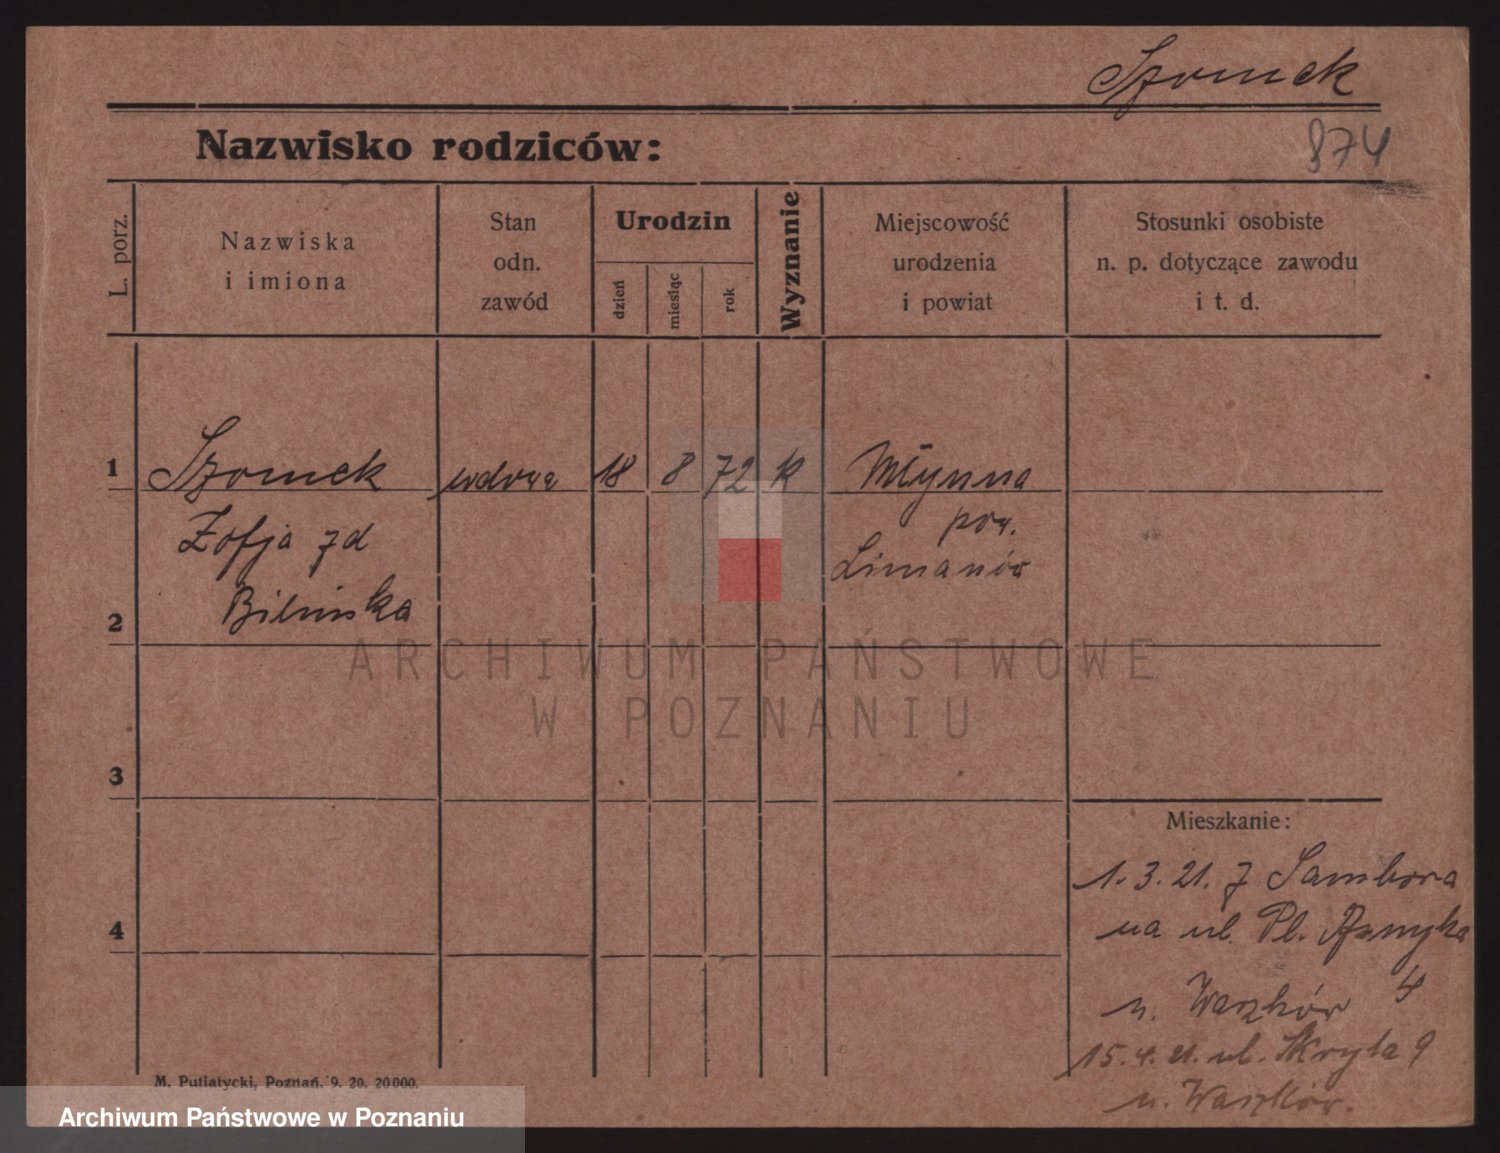 Szomek
874
Nazwisko rodziców:
L. porz.
Nazwiska
i imiona
Stan
odn.
zawód
Urodzin
dzień
miesiąc
rok
Wyznanie
Miejscowość
urodzenia
i powiat
Stosunki osobiste
n. p. dotyczące zawodu
i t. d.
1 Szomek wdowa 18 8 72 k Młynna
Zofja zd pow.
Limanów
2 Bilinska
ARCHIWUM PAŃSTWOWE
W POZNANIU
3
Mieszkanie:
1. 3. 21. z Sambora
4 na ul. Pl. Asnyka
4
u. Waszków
15. 4. 21. ul. Skryta 9
u. Waszków.
M. Putiatycki, Poznań. 9. 20. 20000.
Archiwum Państwowe w Poznaniu